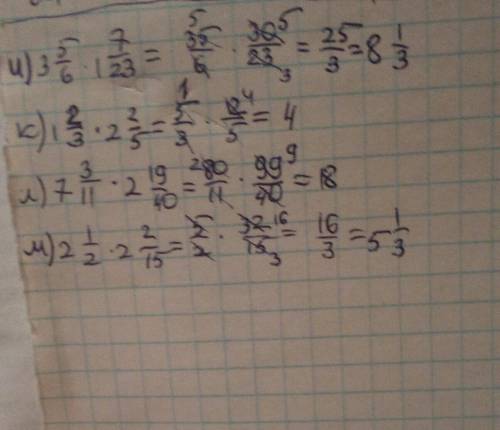 и) 3 5/6 · 1 7/23 = 35/6 5 · 30/23 5 3 = 25/3 = 8 1/3
к) 1 2/3 · 2 2/5 = 5/3 1 · 12/5 4 = 4
л) 7 3/11 · 2 19/40 = 80/11 2 · 99/40 9 = 18
м) 2 1/2 · 2 2/15 = 5/2 · 32/15 16 3 = 16/3 = 5 1/3